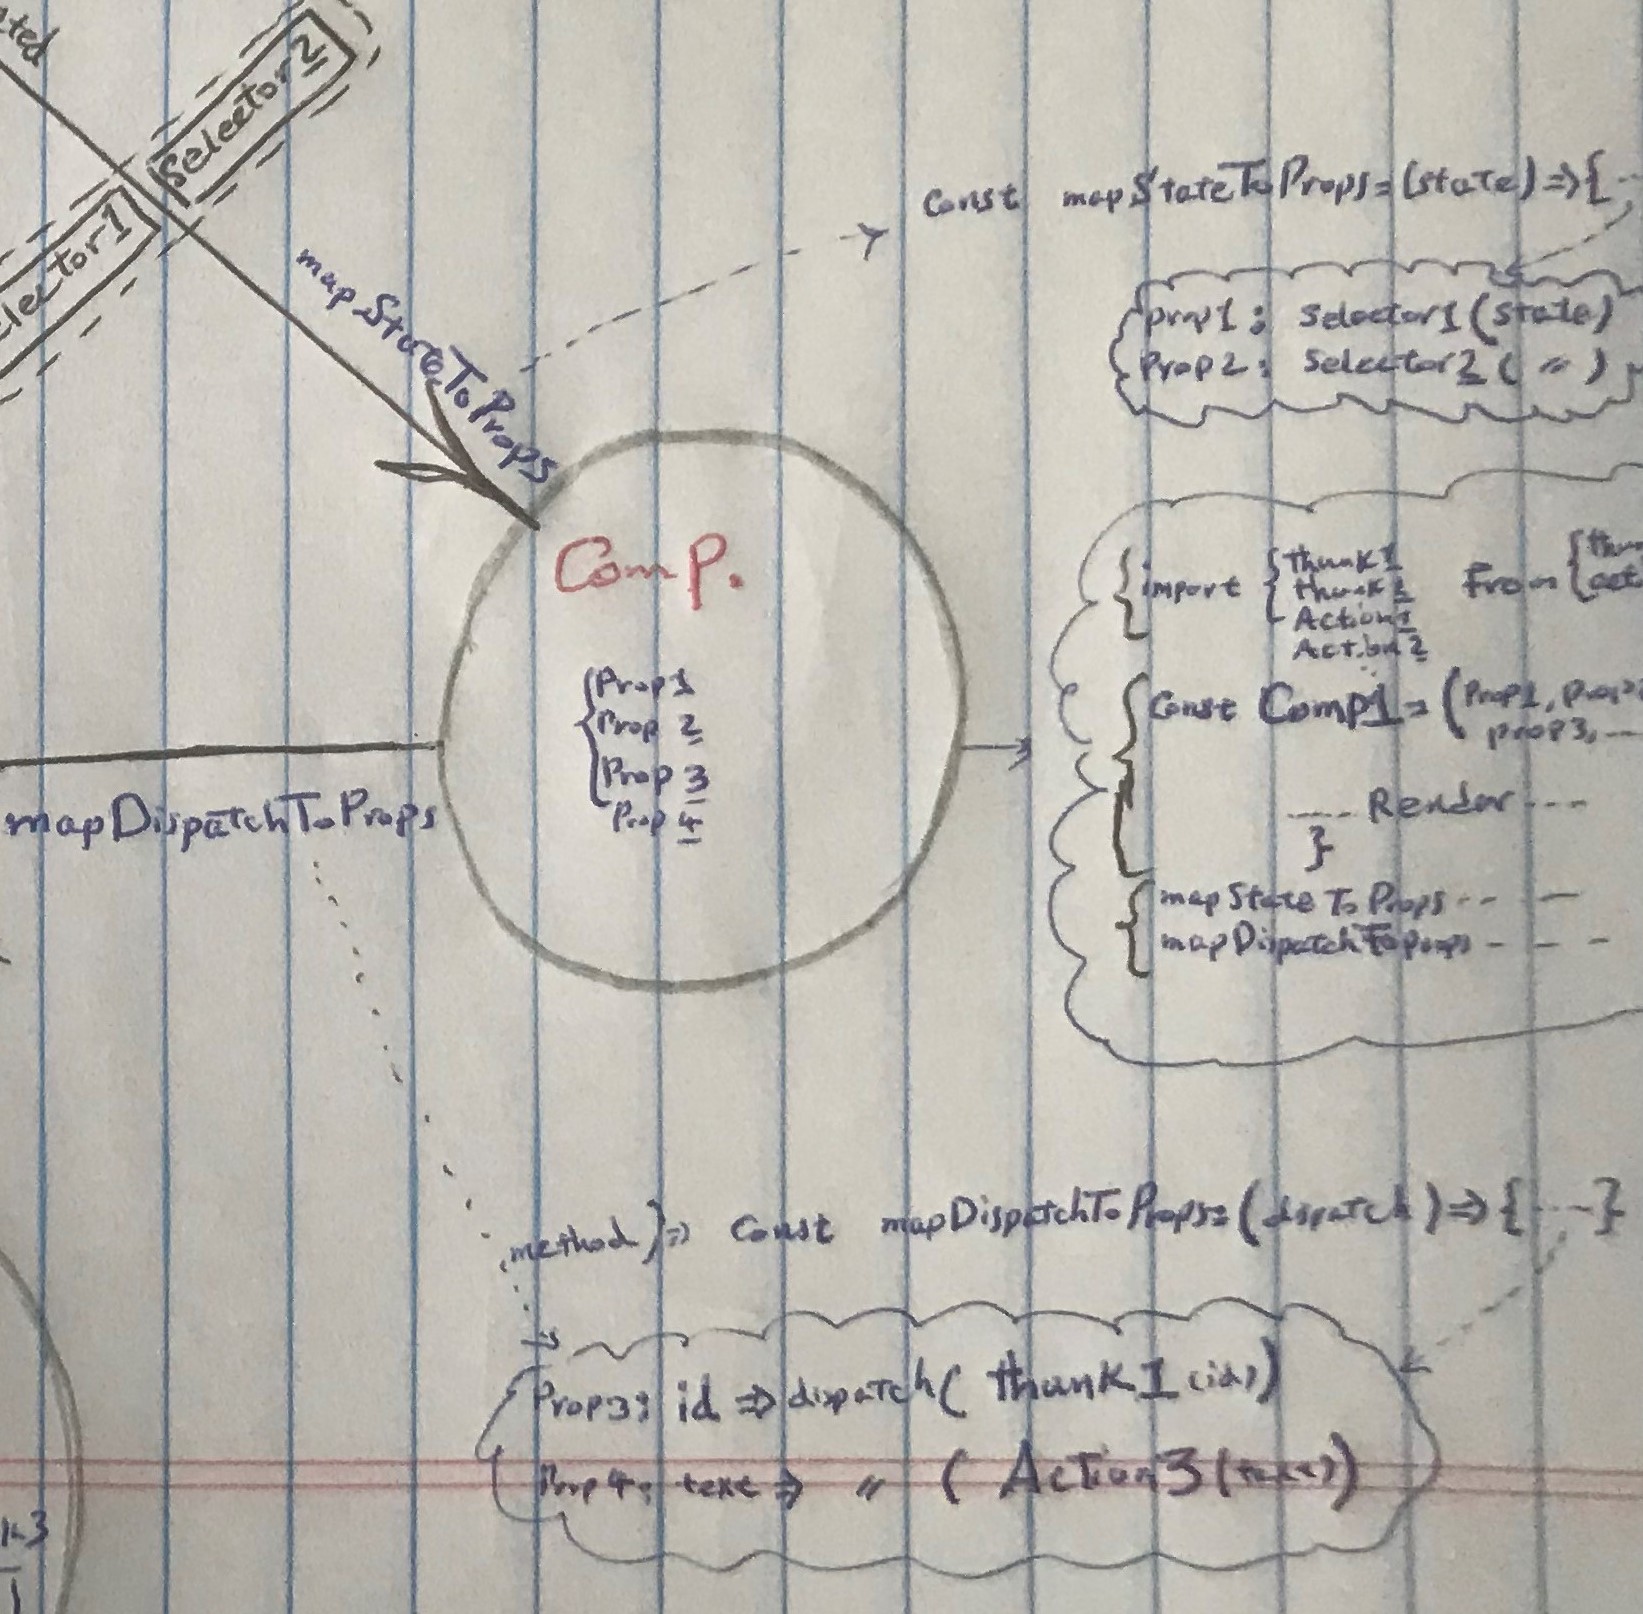 Selector2
mapStateToProps
Const mapStateToProps=(state)=>{
prop1: Selector1(State)
Prop2: Selector2( " )
Comp.
{Prop1
Prop 2
Prop 3
Prop 4
import {thunk1
Action2
From
Const Comp1=(Prop1,
prop3, ---
---- Render ----
}
mapStateToProps -- --
mapDispatchToprops - - -
mapDispatchToProps
method }=> Const mapDispatchToProps=(dispatch)=>{----}
Prop3: id => dispatch( thunk1(id))
Prop4: text => " ( Action3(text))